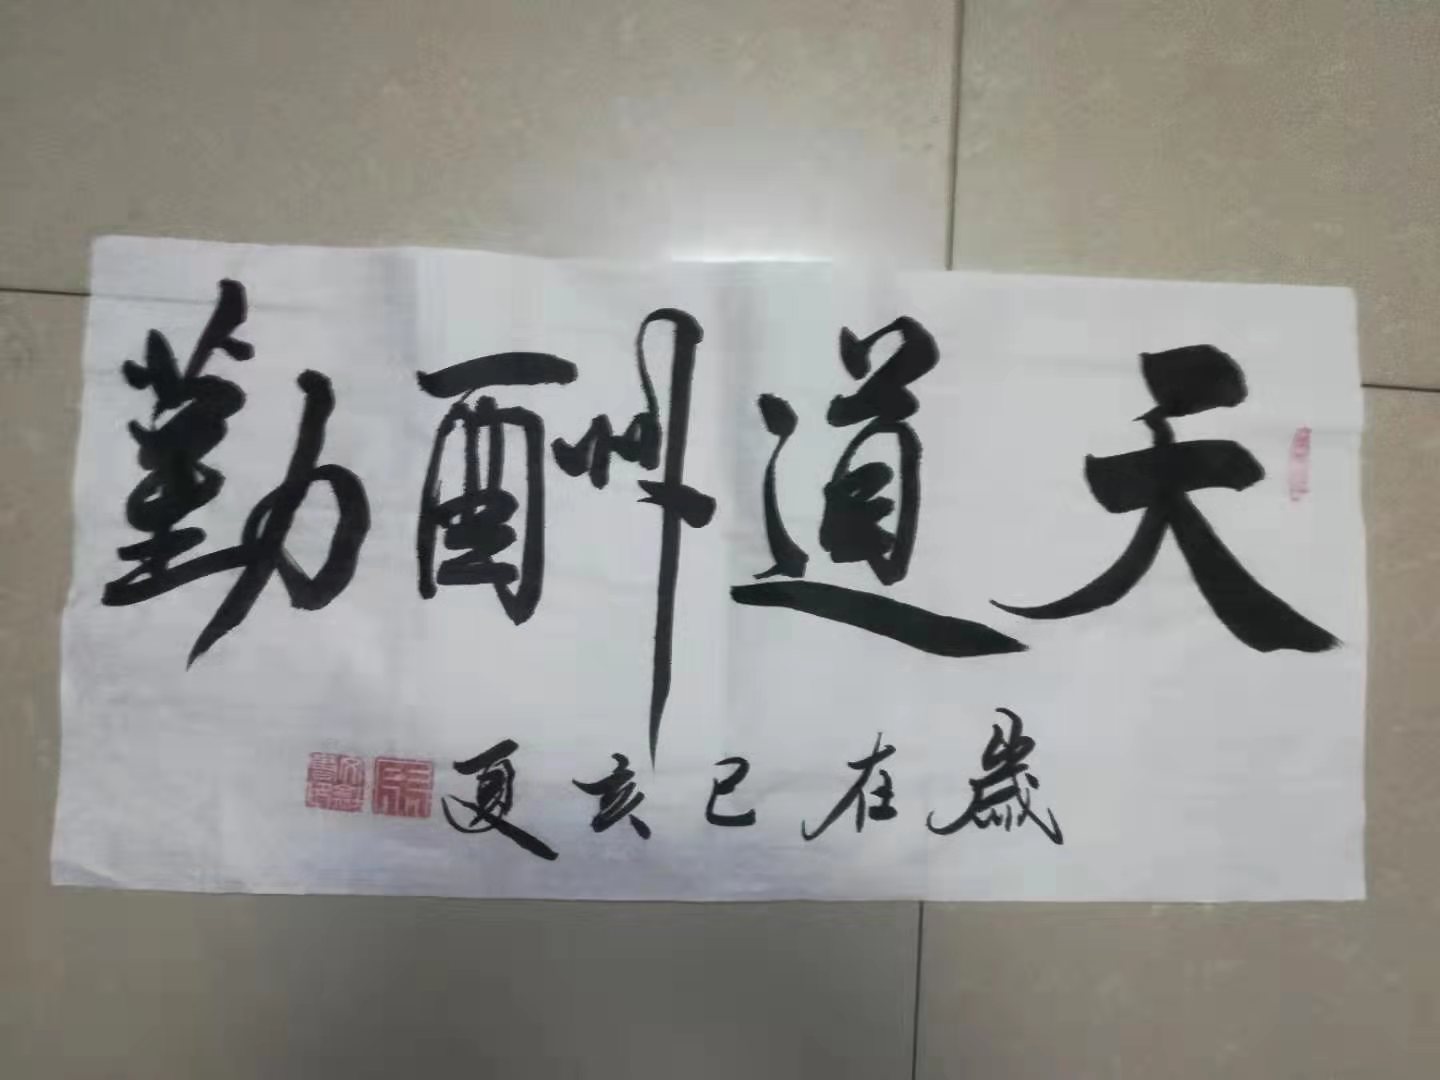 天道酬勤
歲在己亥夏